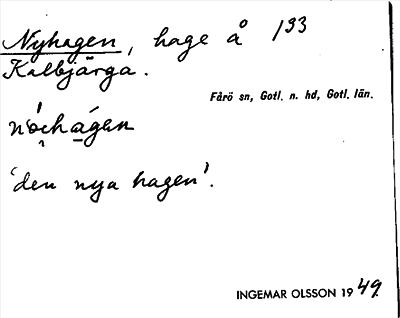 Nyhagen, hage å 133
Kalbjärga.
Fårö sn, Gotl. n. hd, Gotl. län.
'den nya hagen'.
INGEMAR OLSSON 1949.